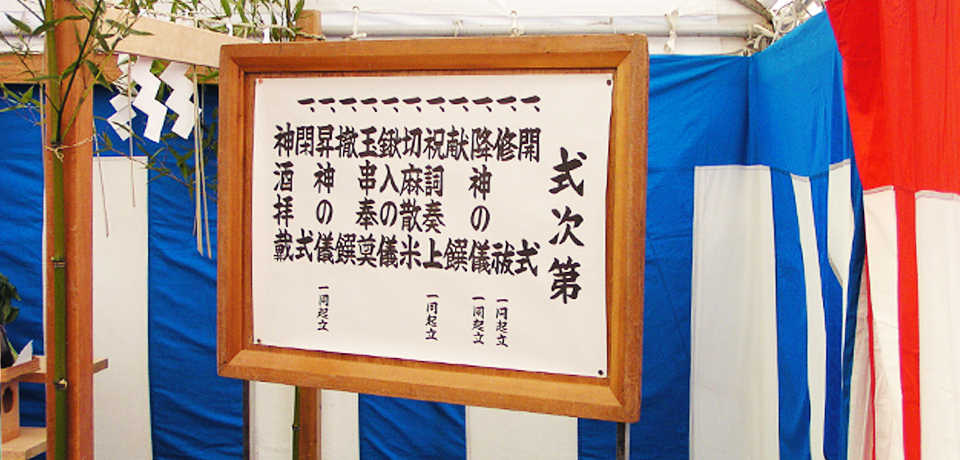 式次第
一、開式
一、修祓 一同起立
一、降神の儀 一同起立
一、献饌
一、祝詞奏上 一同起立
一、切麻散米
一、鍬入の儀
一、玉串奉奠
一、撤饌
一、昇神の儀 一同起立
一、閉式
神酒拝載